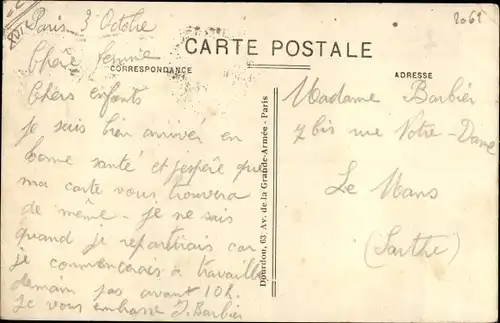 Paris 3 Octobre
2062
CARTE POSTALE
Chère femme
CORRESPONDANCE
ADRESSE
Chers enfants
je suis bien arrivé en
bonne santé et j'espère que
ma carte vous trouvera
de même - je ne sais
quand je repartirais car
je commencerais à travailler
demain pas avant 10h.
je vous embrasse J. Barbier
Dourdou, 63 Av. de la Grande-Armée - Paris
Madame Barbier
7 bis rue Notre-Dame
Le Mans
(Sarthe)